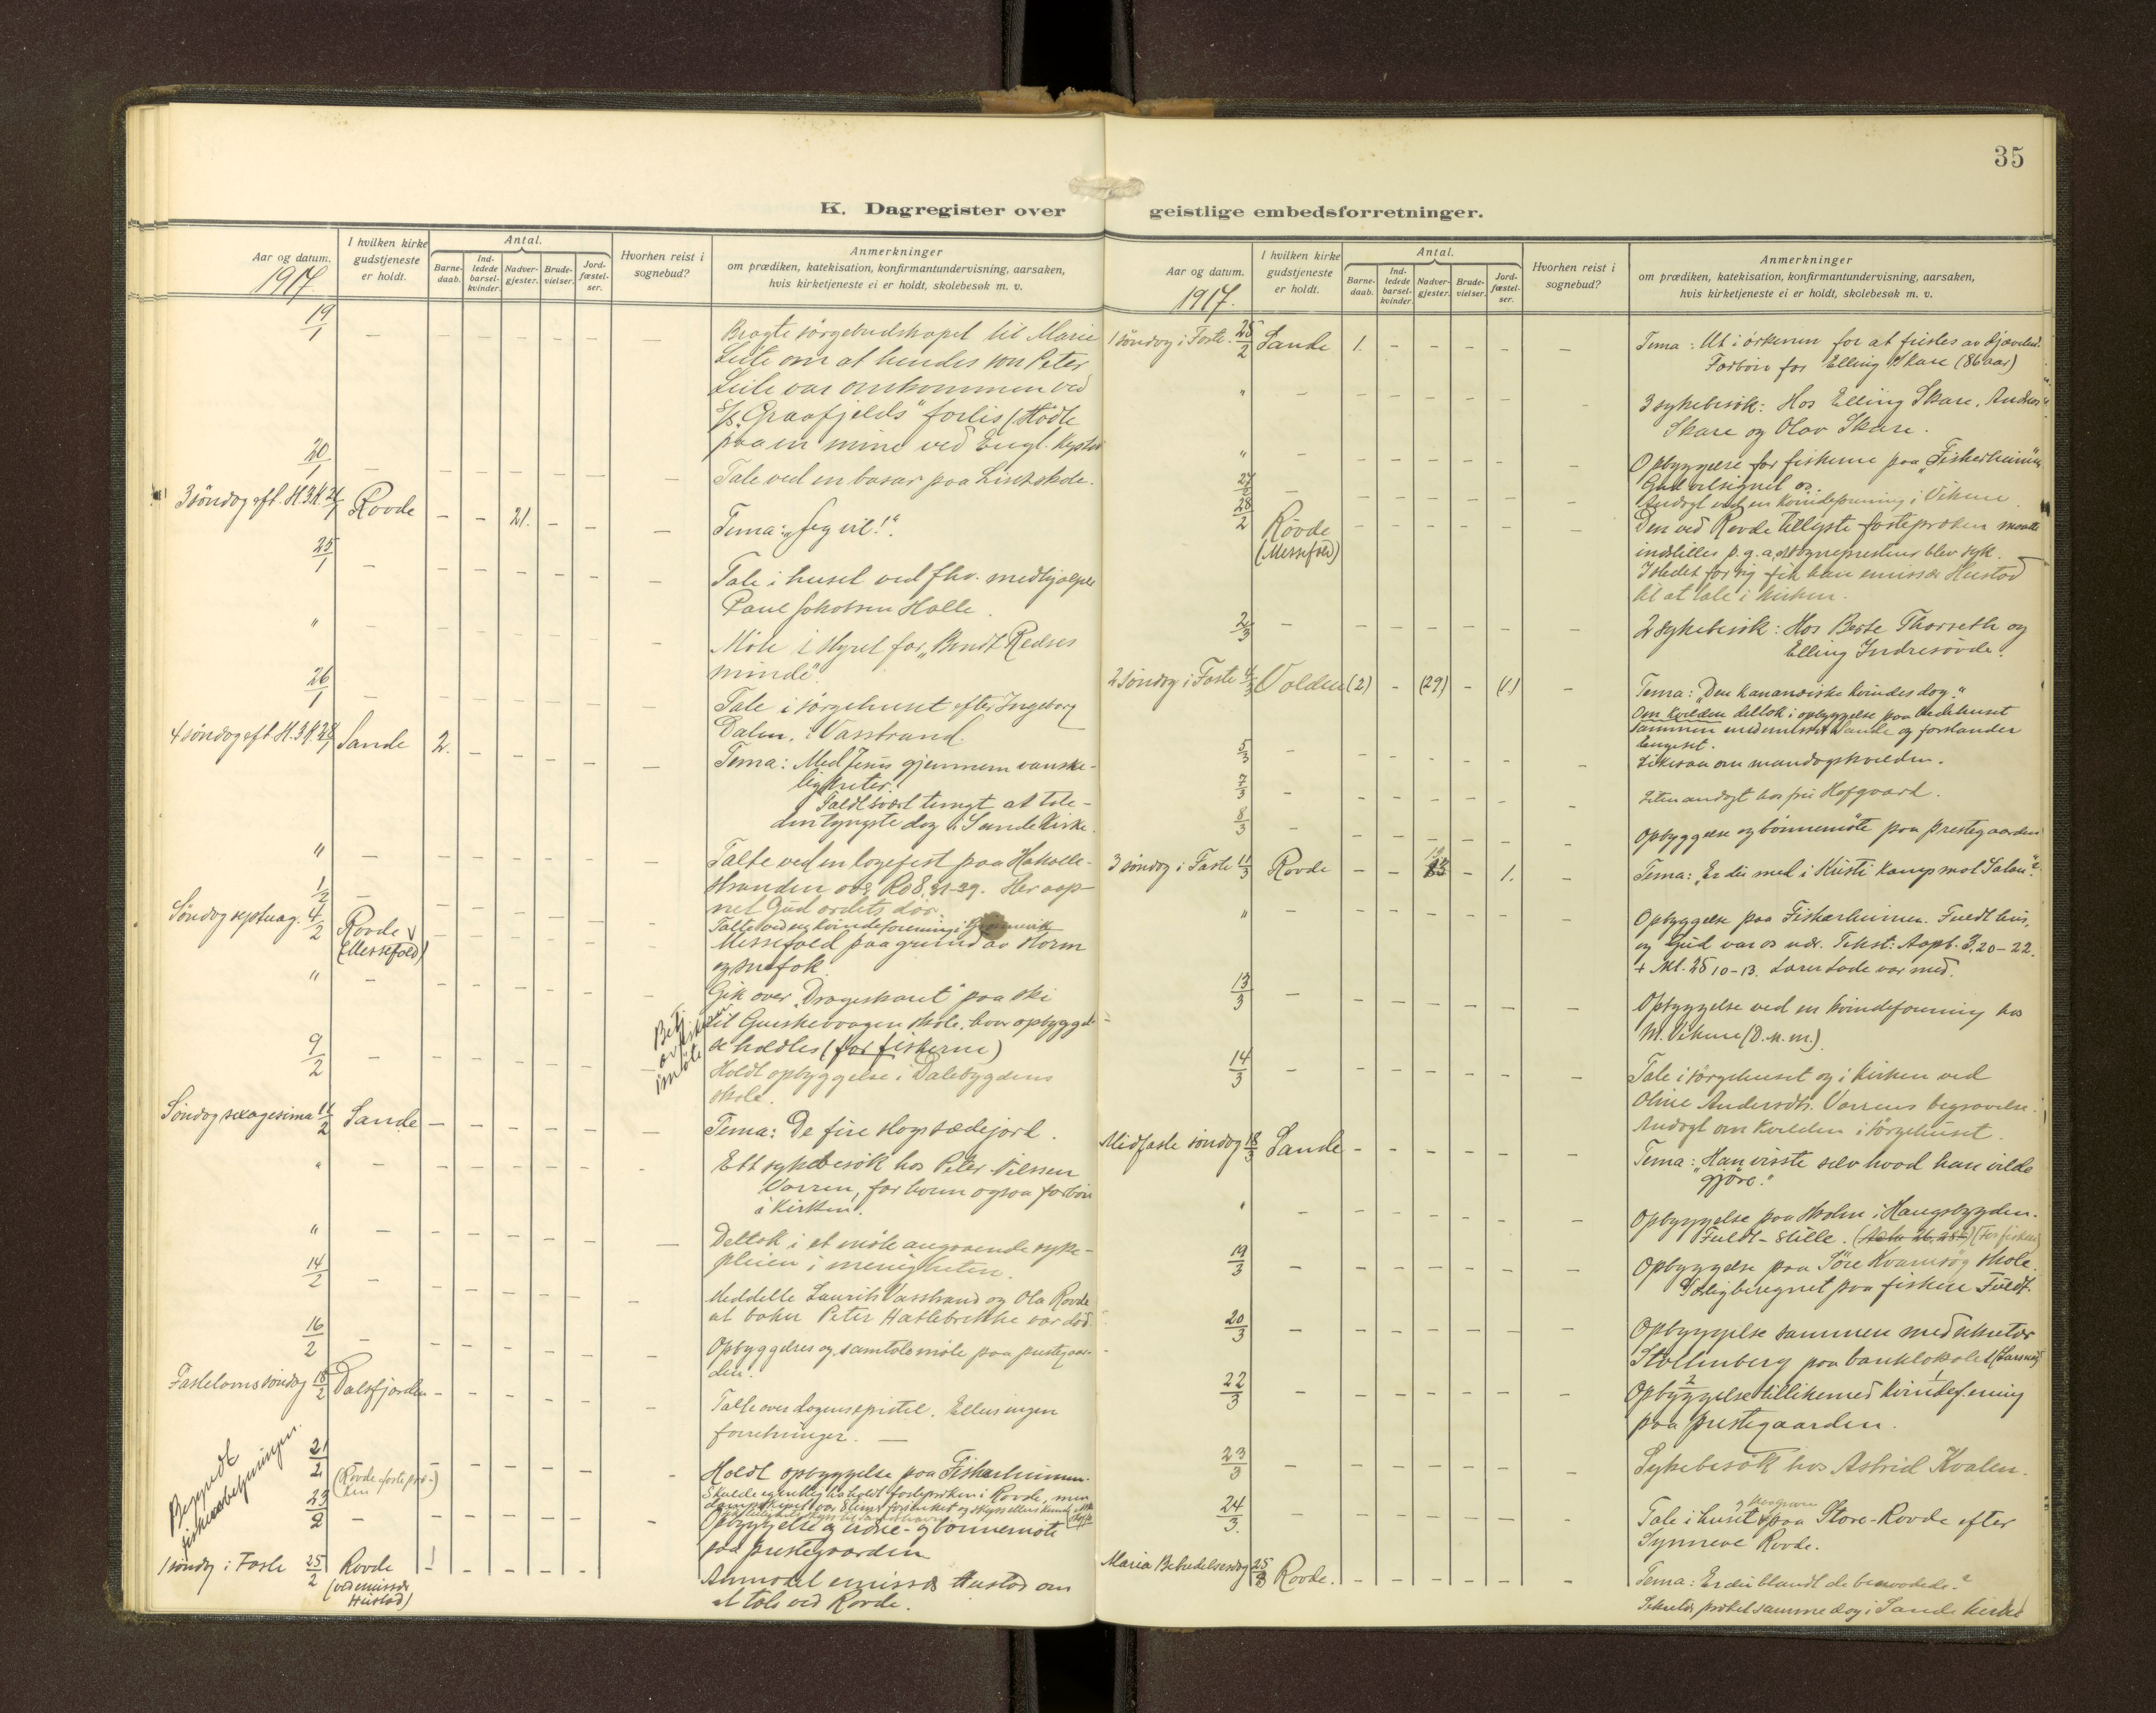 35
K. Dagregister over geistlige embedsforretninger.
Aar og datum.
1917
I hvilken kirke gudstjeneste er holdt.
Antal.
Barne-daab.
Ind-ledede barsel-kvinder.
Nadver-gjester.
Brude-vielser.
Jord-fæstel-ser.
Hvorhen reist i sognebud?
Anmerkninger
om prædiken, katekisation, konfirmantundervisning, aarsaken,
hvis kirketjeneste ei er holdt, skolebesøk m. v.
19/1 — — — — — — — Bragte sørgebudskapet til Marie
Leite om at hendes søn Peter
Leite var omkommen ved
S/S „Graafjelds" forlis (stødte
paa en mine ved Engl. kysten
20/1 — — — — — — — Tale ved en basar paa skole.
3 søndag eft. H.3.K. 21/1 Rovde — — 21. — — — Tema: „Jeg vil!"
25/1 — — — — — — — Tale i huset ved fhv. medhjælper
Paul Jakobsen Holle.
" — — — — — — — Møte i styret for „Bendt Redses
minde".
26/1 — — — — — — — Tale i sørgehuset efter Ingeborg
Dalen, Vasstrand.
4 søndag eft. H.3.K. 28/1 Sande 2. — — — — — Tema: Med Jesus gjennem vanske-
ligheter.
Faldt svært tungt at tale -
den tyngste dag i Sande kirke.
" — — — — — — — Talte ved en logefest paa Hakalle-
stranden ov. Ro 8, 31-39. Her aap-
net Gud ordets dør.
1/2 — Talte ved en kvindeforening i
Søndag septuag. 4/2 Rovde
(Messefald)
Messefald paa grund av storm
og snefok
" — — — — — — — Gik over „Drageskaret" paa ski
til Gurskevaagen skole, hvor opbyggel-
se holdtes (for fiskerne)
9/2 — — — — — — — Holdt opbyggelse i Dalebygdens
skole.
Søndag sexagesima 11/2 Sande — — — — — — Tema: De fire slags sædejord.
" — — — — — — — Ett sykebesøk hos Peter Nilssen
Vorren, for ham ogsaa forbøn
i kirken.
" — — — — — — — Deltok i et møte angaaende syke-
pleien i menigheten.
14/2 — — — — — — — Meddelte Laurits Vasstrand og Ola Rovde
at baker Peter Hatlebrekke var død.
16/2 — — — — — — — Opbyggelses og samtalemøte paa prestegaar-
den.
Fastelavns søndag 18/2 Dalsfjorden — — — — — — Talte over dagens epistel. Ellers ingen
forretninger. —
Begyndt
fiskeribetjeningen.
21/2 (Rovde fastepræ-
ken) — — — — — — Holdt opbyggelse paa Fiskarheimen.
Skulde egentlig ha holdt fastepræken i Rovde, men
23/2 — — — — — — — Opbyggelse og vidne- og bønnemøte
paa prestegaarden
1 søndag i Faste 25/2 Rovde
(ved emissær
Hustad)
1 — — — — Anmodet emissær Hustad om
at tale ved Rovde.
Aar og datum.
1917.
I hvilken kirke gudstjeneste er holdt.
Antal.
Barne-daab.
Ind-ledede barsel-kvinder.
Nadver-gjester.
Brude-vielser.
Jord-fæstel-ser.
Hvorhen reist i sognebud?
Anmerkninger
om prædiken, katekisation, konfirmantundervisning, aarsaken,
hvis kirketjeneste ei er holdt, skolebesøk m. v.
1 søndag i Faste. 25/2 Sande 1. — — — — — Tema: Ut i ørkenen for at fristes av djævelen.
Forbøn for Elling Skare (86 aar)
" — — — — — — — 3 sykebesøk: Hos Elling Skare, Andreas
Skare og Olav Skare.
" — — — — — — — Opbyggelse for fiskerne paa „Fiskerheimen"
Gud velsignet os.
27/2 — — — — — — — Andagt ved en kvindeforening i Vikene.
28/2 Rovde
(Messefald)
— — — — — — Den ved Rovde tillyste fastepræken maatte
indstilles p. g. a. at sogneprestens blev syk.
I stedet for sig fik han emissær Hustad
til at tale i kirken.
2/3 — — — — — — — 2 sykebesøk: Hos Berte Thorseth og
Elling Indresøvde.
2 søndag i Faste 4/3 Volden (2) — (29) — (1.) — Tema: „Den kananæiske kvindes dag."
Om kvelden deltok i opbyggelse paa bedehuset
sammen med Sande og forstander
Lengeset.
5/3 — — — — — — — Likesaa om mandagskvelden.
7/3 — — — — — — — Liten andagt hos fru Hofgaard.
8/3 — — — — — — — Opbyggelse og bønnemøte paa prestegaarden
3 søndag i Faste 11/3 Rovde — — 13 — 1. — Tema: „Er du med i Kristi kamp mot Satan"?
" — — — — — — — Opbyggelse paa Fiskarheimen. Fuldt hus,
og Gud var os nær. Tekst: Aapb. 3, 20-22.
+ Mt. 25 10-13. Lærer Lade var med.
13/3 — — — — — — — Opbyggelse ved en kvindeforening hos
M. Vikene (D. n. m.)
14/3 — — — — — — — Tale i sørgehuset og i kirken ved
Oline Andersdtr. Vorrens begravelse.
Andagt om kvelden i sørgehuset.
Midfaste søndag 18/3 Sande — — — — — — Tema: „Han visste selv hvad han vilde
gjøre."
" — — — — — — — Opbyggelse paa skolen i Haugsbygden.
Fuldt - stille. (For fiskere)
19/3 — — — — — — — Opbyggelse paa Søre Kvamsøy skole.
Særlig beregnet paa fiskere Fuldt.
20/3 — — — — — — — Opbyggelse sammen med sekretær
Stoltenberg paa banklokalet (Larsnes)
22/3 — — — — — — — Opbyggelse tillikemed kvindef.ening
paa prestegaarden.
23/3 — — — — — — — Sykebesøk hos Astrid Kvalen.
24/3. — — — — — — — Tale i huset paa Store-Rovde efter
Synneve Rovde.
Maria Bebudelsesdag 25/3 Rovde. — — — — — — Tema: Er du blandt de benaadede?
Sekretær præket samme dag i Sande kirke